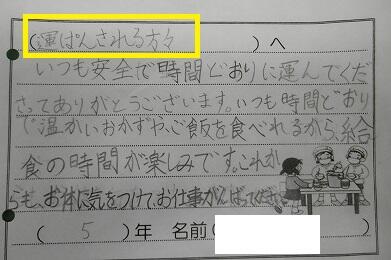 (運ぱんされる方々)へ
いつも安全で時間どおりに運んでくだ
さってありがとうございます。いつも時間どおり
で温かいおかずや、ご飯を食べれるから、給
食の時間が楽しみです。これか
らも、お体に気をつけて、お仕事がんばってください。
(5)年 名前(